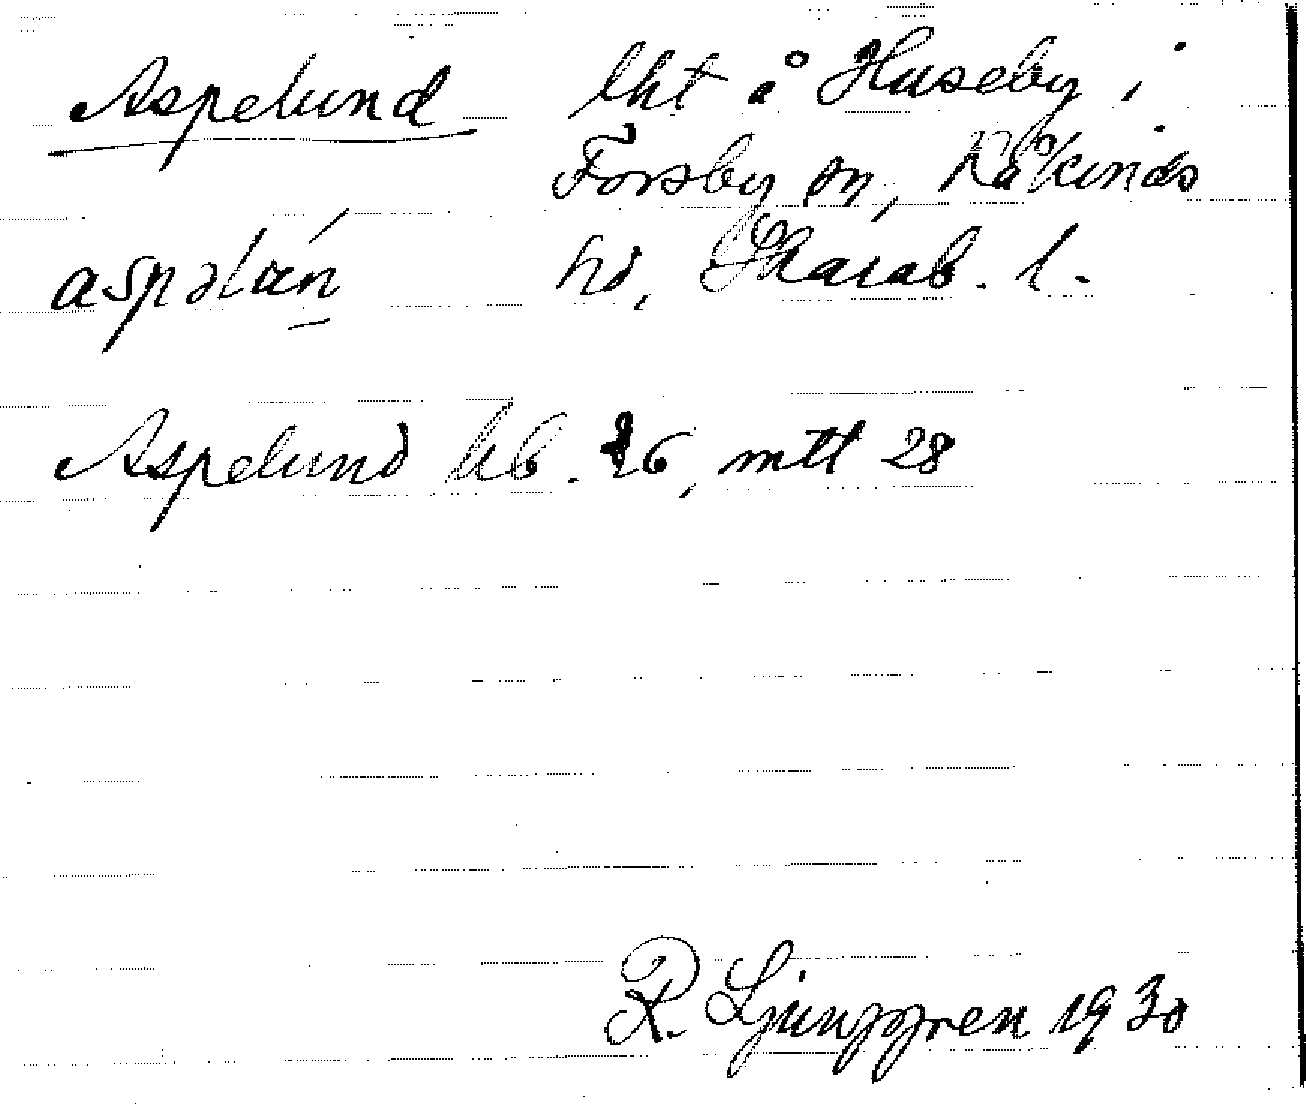 Aspelund lht å Huseby i
Forsby sn, Kåkinds
aspəlæn hd, Skarab. l.
Aspelund hb. 26, mtl 28
R. Ljunggren 1930